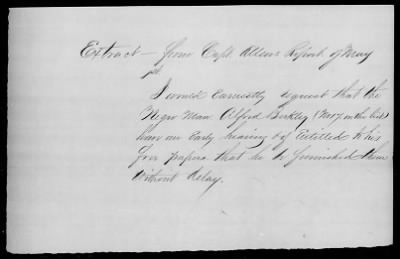 Extract — from Capt Allens Report of May
1st
I would Earnestly request that the
Negro Man Alfred Berkley (No 7 on the list)
have an Early hearing & if Entitled to his
free papers that he be furnished them
Without delay.